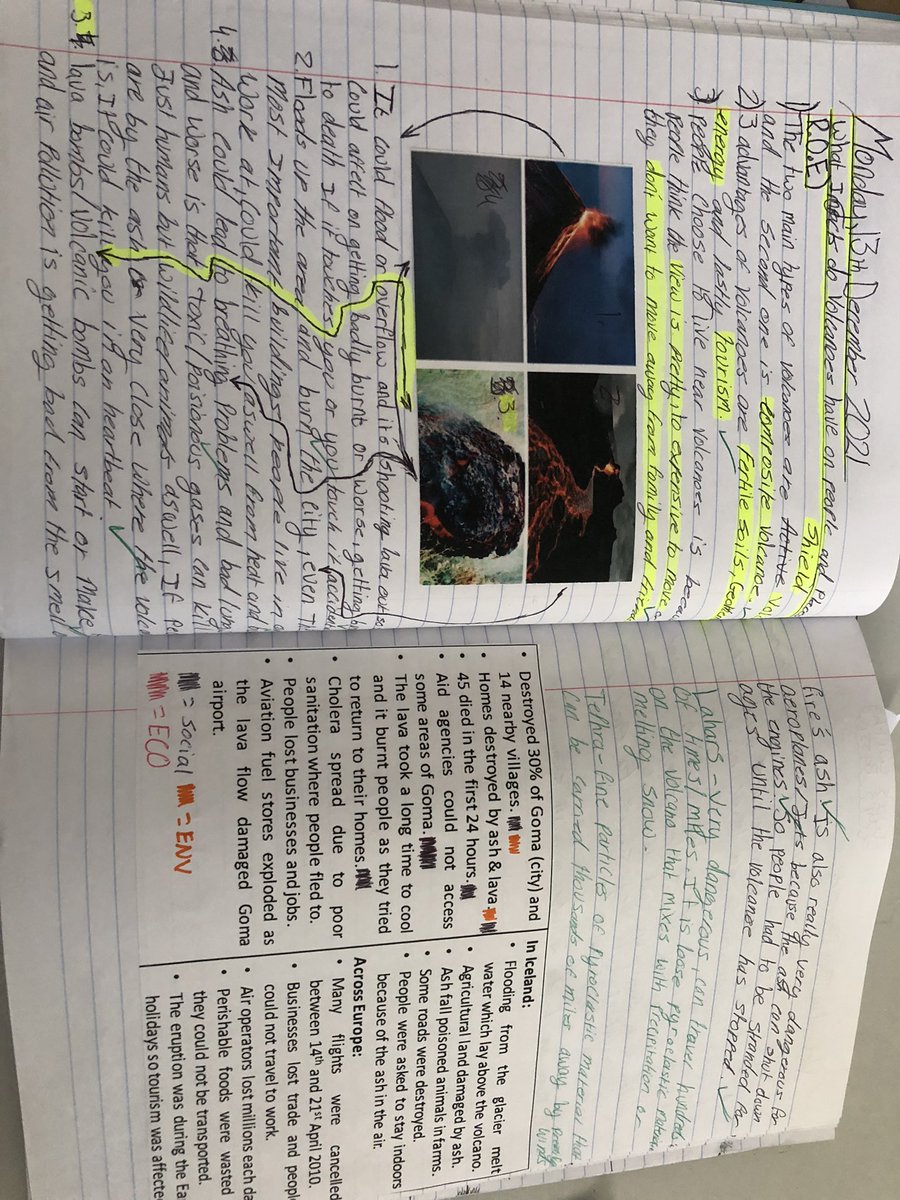 Monday 13th December 2021
What Impacts do Volcanoes have on people and
P.O.E)
Shield
1) The two main types of volcanoes are Active
and the second one is Composite Volcano.
2) 3 advantages of Volcanoes are Fertile soils, Geoth
energy and lastly tourism.
3) People choose to live near Volcanoes is beca
People think the view is pretty, to expensive to move,
they don't want to move away from family and frie
1
2
3
4
1. It could flood or overflow and its shooting lava out so
Could affect on getting badly burnt or worse, getting
to death if it touches you or you touch it accident
2. Floods up the area and burn the city, even Th
Most important buildings people live in o
Work at, Could kill you aswell from heat and
4. Ash could lead to breathing Problems and bad lung
and worse is that toxic/Poisionous gases can kil
Just humans but wildlife animals aswell, If Pe
are by the ash very close where the volc
is, it could kill you in an heartbeat
3. lava bombs/Volcanic bombs can start or Make
and air Pollution is getting bad from the smell
fire's ash Is also really very dangerous for
aeroplanes/Jets because the ash can shut down
the engines So people had to be stranded for
ages until the Volcanoe has stopped
Lahars - Very dangerous, can travel hundreds
of times/miles. It is loose pyroclastic material
on the volcano that mixes with Precipitation or
melting snow.
Tephra - fine particles of Pyroclastic material that
Can be carried thousands of miles away by
wind
• Destroyed 30% of Goma (city) and
14 nearby villages.
• Homes destroyed by ash & lava.
• 45 died in the first 24 hours.
• Aid agencies could not access
some areas of Goma.
• The lava took a long time to cool
and it burnt people as they tried
to return to their homes.
• Cholera spread due to poor
sanitation where people fled to.
• People lost businesses and jobs.
• Aviation fuel stores exploded as
the lava flow damaged Goma
airport.
= Social = ENV
= ECO
In Iceland:
• Flooding from the glacier melt
water which lay above the volcano.
• Agricultural land damaged by ash.
• Ash fall poisoned animals in farms.
• Some roads were destroyed.
• People were asked to stay indoors
because of the ash in the air.
Across Europe:
• Many flights were cancelled
between 14th and 21st April 2010.
• Businesses lost trade and peopl
could not travel to work.
• Air operators lost millions each da
• Perishable foods were wasted
they could not be transported.
• The eruption was during the Ea
holidays so tourism was affecte